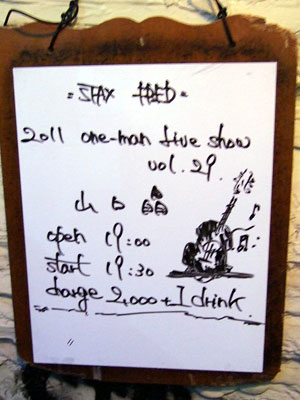 = STAX FRED =
2011 one-man live show
vol. 29.
山口晶
open 19:00
start 19:30
charge 2,000 + 1 drink.